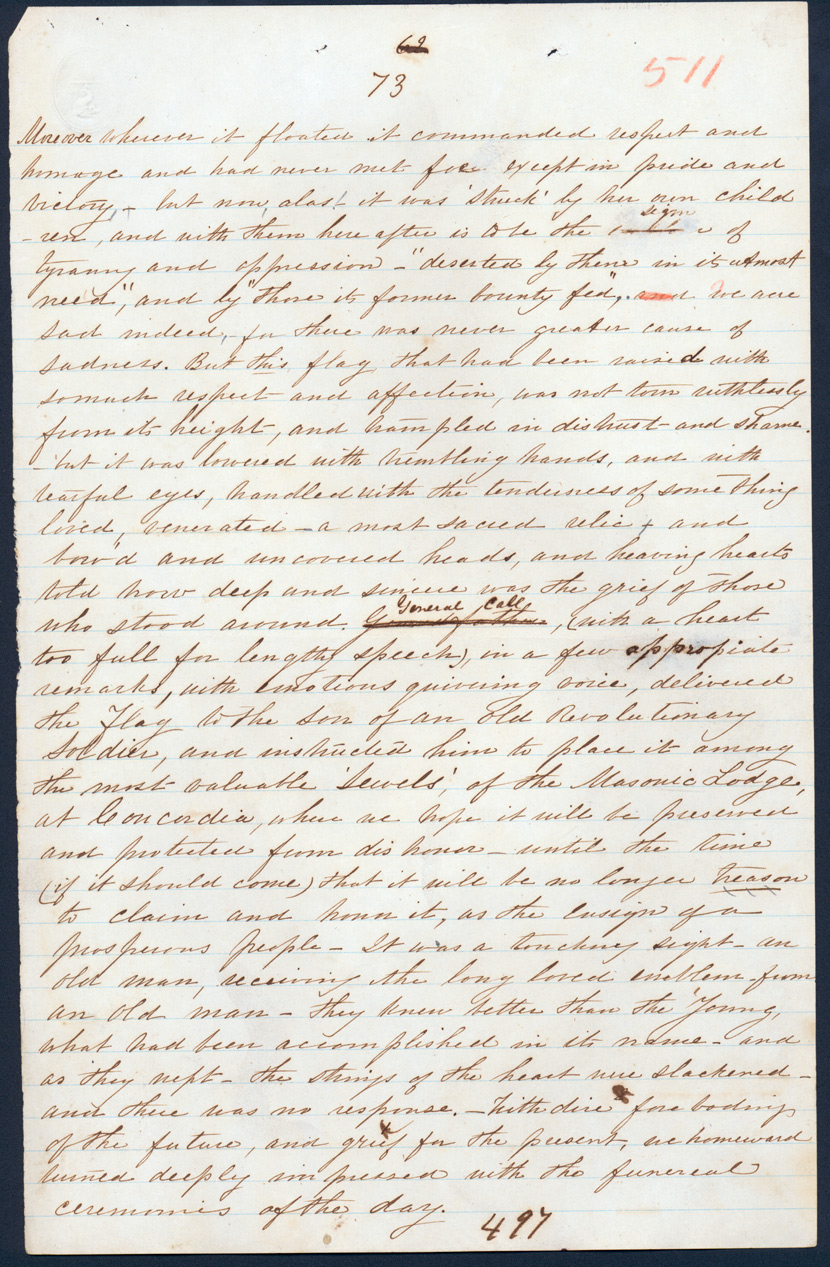 62
73
511
Moreover wherever it floated it commanded respect and
homage and had never met foe except in pride and
victory, – but now, alas! it was 'struck' by her own child
-ren, and with them here after is to be the sign of
tyranny and oppression – "deserted by them in its utmost
need", and by "those its former bounty fed", and we were
sad indeed, – for there was never greater cause of
sadness. But this flag that had been raised with
somuch respect and affection, was not torn ruthlessly
from its height, and trampled in distrust and shame.
– but it was lowered with trembling hands, and with
tearful eyes, handled with the tenderness of some thing
loved, venerated – a most sacred relic, and
bow'd and uncovered heads, and heaving hearts
told how deep and sincere was the grief of those
who stood around. General Call, (with a heart
too full for lengthy speech), in a few appropiate
remarks, with emotions quivering voice, delivered
the Flag to the son of an old Revolutionary
Soldier, and instructed him to place it among
the most valuable 'Jewels', of the Masonic Lodge,
at Concordia, where we hope it will be preserved
and protected from dishonor – until the time
(if it should come) that it will be no longer treason
to claim and honor it, as the Ensign of a
prosperous people – It was a touching sight – an
old man, receiving the long loved emblem from
an old man – they knew better than the 'Young,
what had been accomplished in its name – and
as they wept – the strings of the heart were slackened –
and there was no response. – With dire fore boding
of the future, and grief for the present, we homeward
turned deeply impressed with the funereal
ceremonies of the day.
497